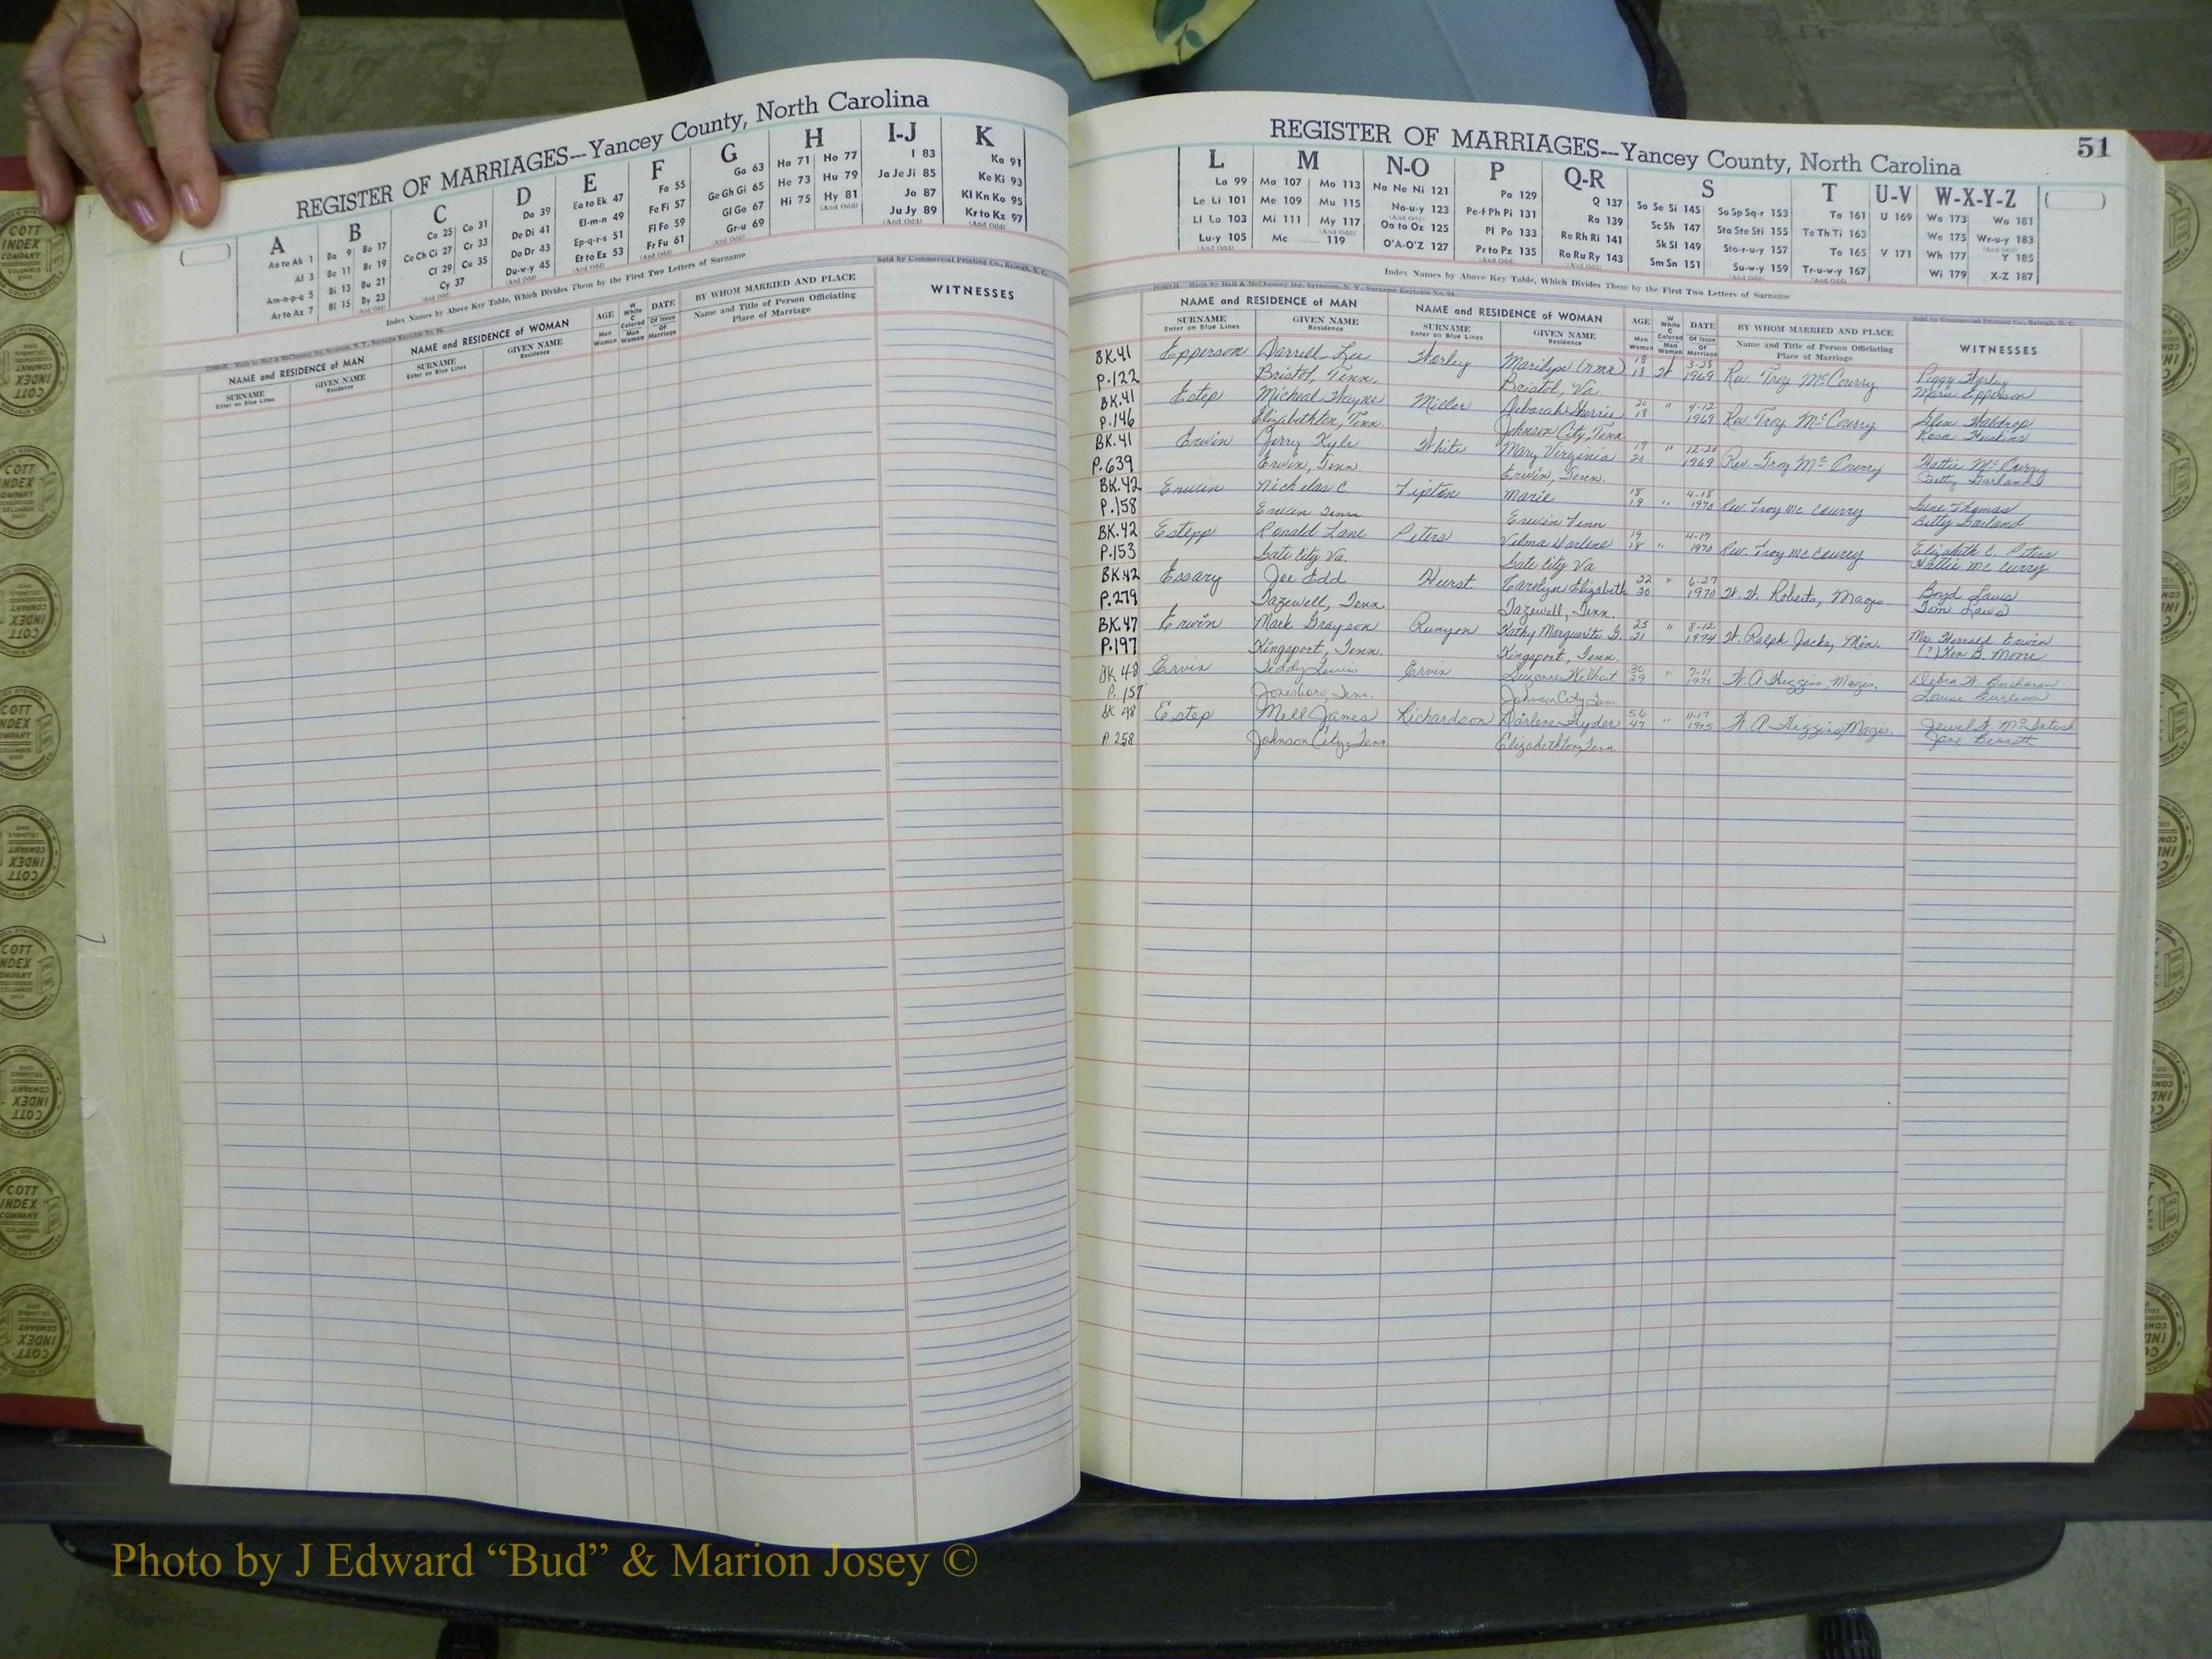 REGISTER OF MARRIAGES---Yancey County, North Carolina
A B C D E F G H I-J K
Aa to Ak 1 Al 3 Am-n-p-q 5 Ar to Az 7
Ba 9 Be 11 Bi 13 Bl 15 Bo 17 Br 19 Bu 21 By 23 (And Odd)
Ca 25 Ce Ch Ci 27 Cl 29 Co 31 Cr 33 Cu 35 Cy 37 (And Odd)
Da 39 De Di 41 Do Dr 43 Du-w-y 45 (And Odd)
Ea to Ek 47 El-m-n 49 Ep-q-r-s 51 Et to Ez 53 (And Odd)
Fa 55 Fe Fi 57 Fl Fo 59 Fr Fu 61 (And Odd)
Ga 63 Ge Gh Gi 65 Gl Go 67 Gr-u 69 (And Odd)
Ha 71 He 73 Hi 75 Ho 77 Hu 79 Hy 81 (And Odd)
I 83 Ja Je Ji 85 Jo 87 Ju Jy 89 (And Odd)
Ka 91 Ke Ki 93 Kl Kn Ko 95 Kr to Kz 97 (And Odd)
Index Names by Above Key Table, Which Divides Them by the First Two Letters of Surname
Sold by Commercial Printing Co., Raleigh, N. C.
NAME and RESIDENCE of MAN
SURNAME Enter on Blue Lines
GIVEN NAME Residence
NAME and RESIDENCE of WOMAN
SURNAME Enter on Blue Lines
GIVEN NAME Residence
AGE Man Woman
W White C Colored Man Woman
DATE Of Issue Of Marriage
BY WHOM MARRIED AND PLACE
Name and Title of Person Officiating
Place of Marriage
WITNESSES
REGISTER OF MARRIAGES---Yancey County, North Carolina
51
L M N-O P Q-R S T U-V W-X-Y-Z
La 99 Le Li 101 Ll Lo 103 Lu-y 105 (And Odd)
Ma 107 Me 109 Mi 111 Mc 119 Mo 113 Mu 115 My 117 (And Odd)
Na Ne Ni 121 No-u-y 123 (And Odd) Oa to Ox 125 O'A-O'Z 127
Pa 129 Pe-f Ph Pi 131 Pl Po 133 Pr to Pz 135 (And Odd)
Q 137 Ra 139 Re Rh Ri 141 Ro Ru Ry 143 (And Odd)
Sa Se Si 145 Sc Sh 147 Sk Sl 149 Sm Sn 151 So Sp Sq-r 153 Sta Ste Sti 155 Sto-r-u-y 157 Su-w-y 159 (And Odd)
Ta 161 Te Th Ti 163 To 165 Tr-u-w-y 167 (And Odd)
U 169 V 171
Wa 173 We 175 Wh 177 Wi 179 Wo 181 Wr-u-y 183 (And Odd) Y 185 X-Z 187
Index Names by Above Key Table, Which Divides Them by the First Two Letters of Surname
Made by Hall & McChesney Inc. Syracuse, N. Y., Surname Keytable No. 94.
Sold by Commercial Printing Co., Raleigh, N. C.
NAME and RESIDENCE of MAN
SURNAME Enter on Blue Lines
GIVEN NAME Residence
NAME and RESIDENCE of WOMAN
SURNAME Enter on Blue Lines
GIVEN NAME Residence
AGE Man Woman
W White C Colored Man Woman
DATE Of Issue Of Marriage
BY WHOM MARRIED AND PLACE
Name and Title of Person Officiating
Place of Marriage
WITNESSES
BK.41 Epperson Darrell Lee Horley Marilyn (nmn) 18 3-28 Peggy Horley
P.122 Bristol, Tenn. Bristol, Va. 18 W 1969 Rev. Troy McCourry Marie Epperson
BK.41 Estep Micheal Wayne Miller Deborah Sherrie 20 " 4-12 Glen Waldrop
P.146 Elizabethton, Tenn. Johnson City, Tenn. 18 1969 Rev Troy McCourry Rosa Huskins
BK.41 Erwin Jerry Kyle White Mary Virginia 17 " 12-20 Hattie McCurry
P.639 Erwin, Tenn. Erwin, Tenn. 20 1969 Rev. Troy McCourry Betty Garland
BK.42 Erwin Nicholas C. Tipton Marie 18 4-18 Gene Thomas
P.158 Erwin Tenn Erwin Tenn 19 " 1970 Rev. Troy McCourry Betty Garland
BK.42 Estepp Ronald Lane Peters Velma Darlene 19 4-17 Elizabeth C. Peters
P.153 Gate City Va. Gate City Va 18 " 1970 Rev. Troy McCourry Hattie McCurry
BK.42 Essary Joe Edd Hurst Carolyn Elizabeth 22 " 6-27 Boyd Laws
P.279 Tazewell, Tenn. Tazewell, Tenn. 20 1970 W. W. Roberts, Magis. Tom Laws
BK.47 Erwin Mark Grayson Runyon Kathy Marguerite G. 25 " 8-12 Mrs Herrald Erwin
P.197 Kingsport, Tenn. Kingsport, Tenn. 21 1974 W. Ralph Jacks, Min. (?) Ken B. Moore
BK 48 Ervin Teddy Lewis Ervin Suzanne Wilhoit 30 " 7-11 Debra W. Buchanan
P. 157 Jonesboro, Tenn. Johnson City Tenn 29 1975 W. A. Higgins, Magis. Louise Burleson
BK 48 Estep Mell James Richardson Darlene Hyder 56 " 11-17 Jewel McIntosh
P. 258 Johnson City, Tenn Elizabethton, Tenn. 47 1975 W. A. Higgins Magis. Jane Bennett
COTT INDEX COMPANY COLUMBUS OHIO
Photo by J Edward “Bud” & Marion Josey ©